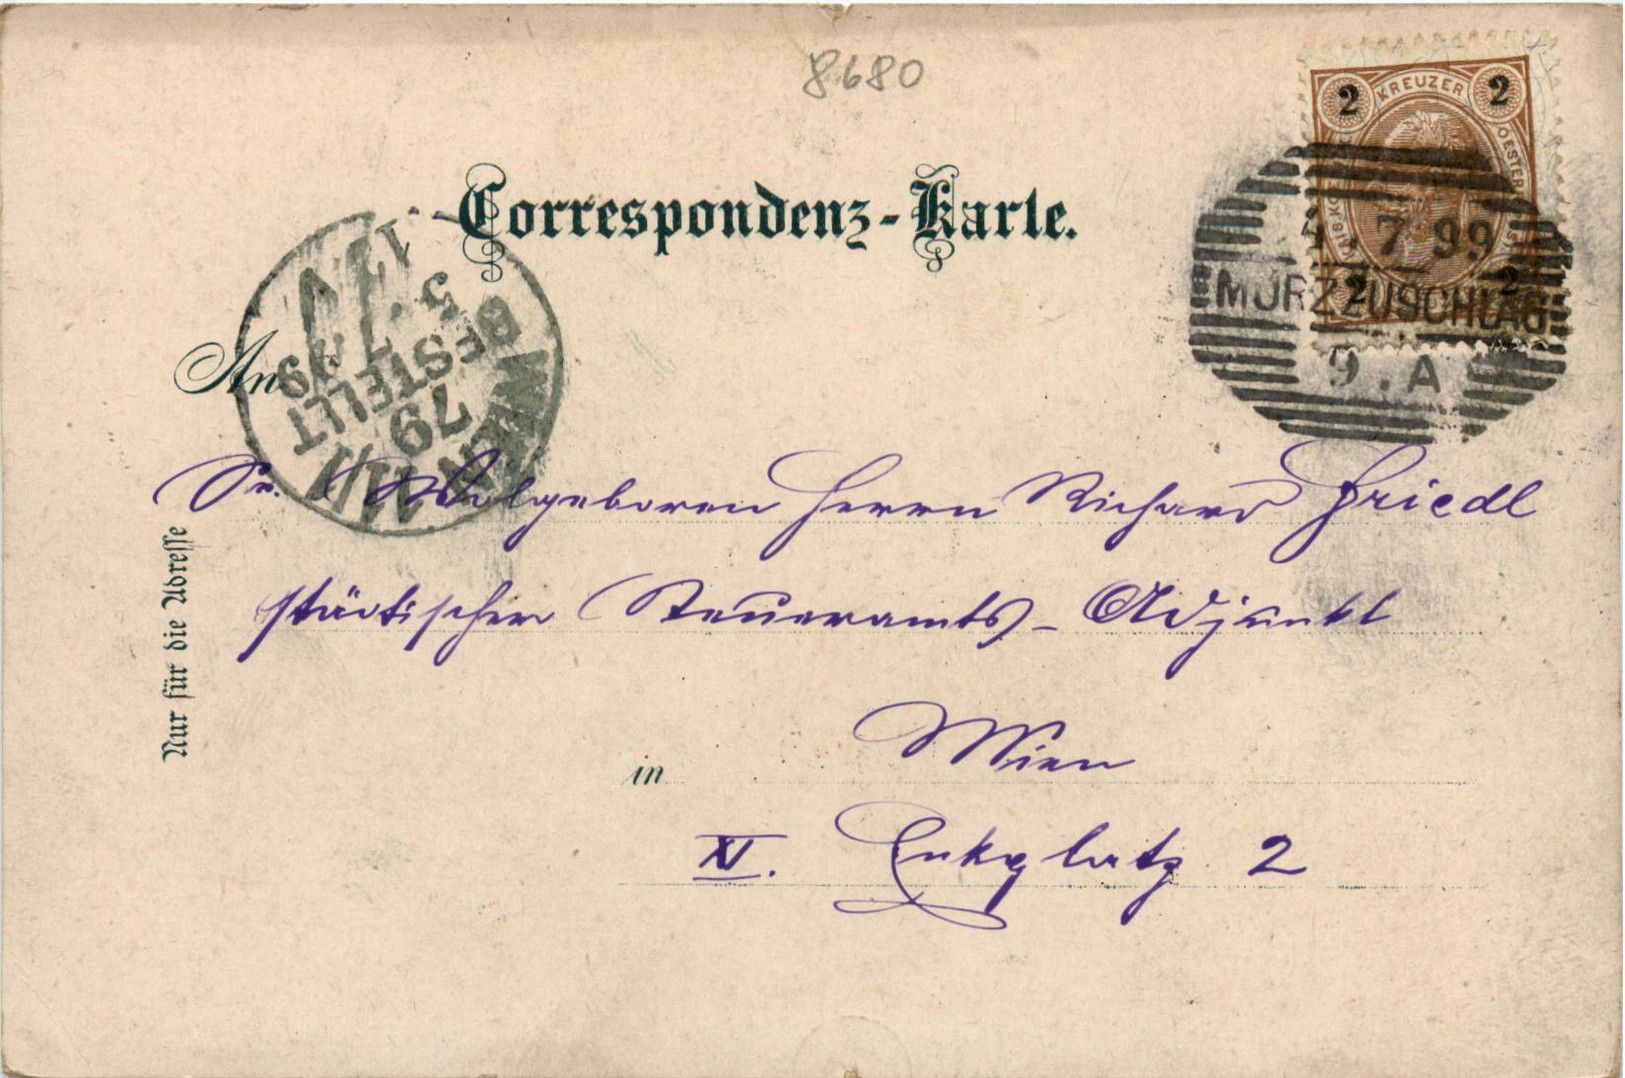 8680
2 KREUZER 2
Correspondenz-Karte.
4. 7 99
MÜRZZUSCHLAG
2 2
9. A
5. 7. 99
BESTELLT
79
An
Sr. Wolgeboren Herrn Richard Friedl
städtischer Steueramts-Adjunkt
in Wien
XV. Enkplatz 2
Nur für die Adresse